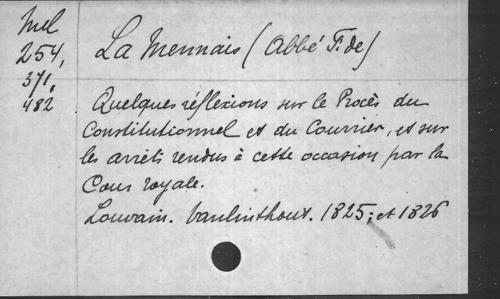 Mel
254,
371,
482
La Mennais (Abbé F. de)
Quelques réflexions sur le Procès du
Constitutionnel et du Courrier, et sur
les arrêts rendus à cette occasion par la
Cour royale.
Louvain. Vanlinthout. 1825; et 1826